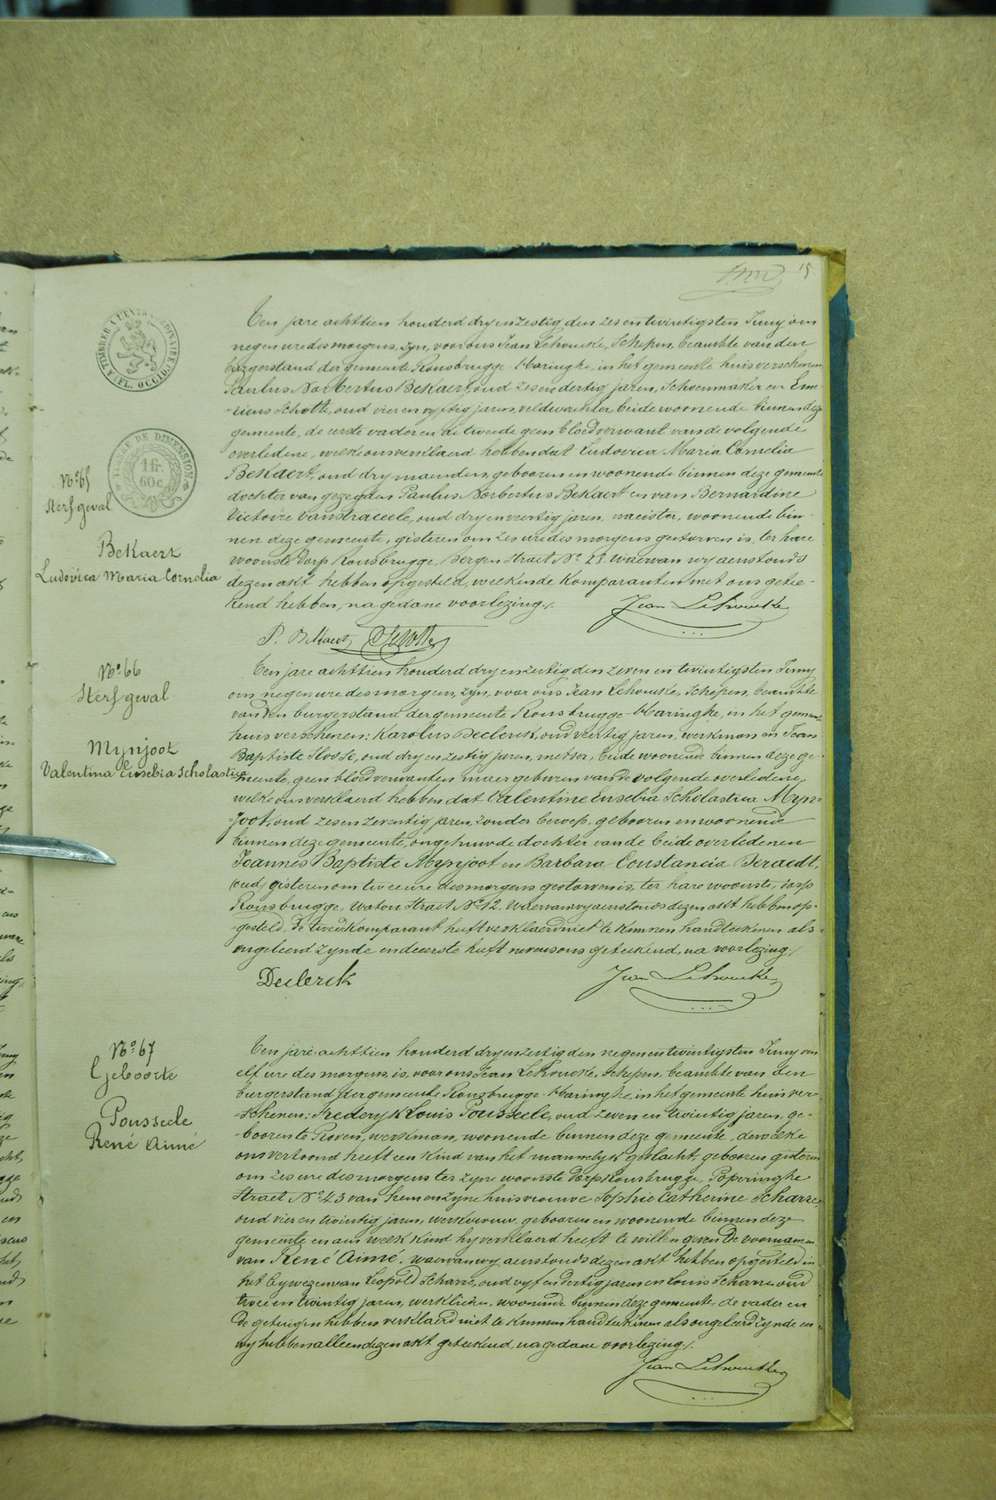 15
TIMBRE DE DIMENSION
1 fr.
60 c.
N.° 65
Sterfgeval
Bekaert
Ludovica Maria Cornelia
Ten jare achttien honderd dry en zestig den zes en twintigsten Juny om
negen ure des morgens, zyn, voor ons Jean Lehoucke, Schepen, beambte van den
burgerstand der gemeente Rousbrugge-Haringhe, in het gemeente huis verschenen
Paulus Norbertus Bekaert, oud zes en dertig jaren, Schoenmaker en Eme-
-riens Schotte, oud vier en vyftig jaren, veldwachter beide woonende binnen deze
gemeente, de eerste vader en de tweede geen bloedverwant van de volgende
overledene, welke ons verklaerd hebben dat Ludovica Maria Cornelia
Bekaert, oud dry maenden, geboren en woonende binnen deze gemeente
dochter van gezegden Paulus Norbertus Bekaert en van Bernardine
Victoire Vanstraceele, oud dry en veertig jaren, naeister, woonende bin-
nen deze gemeente, gisteren om zes ure des morgens gestorven is, ter hare
woonste dorp Rousbrugge, Bergen Straet N.° 28. Waervan wy aenstonds
dezen akt hebben opgesteld, welkende komparanten met ons getee-
kend hebben, na gedane voorlezing.
Jean Lehoucke
P. Bekaert
N.° 66
Sterfgeval
Mynjoot
Valentina Eusebia Scholastica
Ten jare achttien honderd dry en zestig den zeven en twintigsten Juny
om negen ure des morgens, zyn, voor ons Jean Lehoucke, Schepen, beambte
van den burgerstand der gemeente Rousbrugge-Haringhe, in het gemeente
huis verschenen: Karolus Declerck, oud veertig jaren, werkman en Jean
Baptiste Floste, oud dry en zestig jaren, metser, beide woonende binnen deze ge-
meente, geen bloedverwanten maer geburen van de volgende overledene,
welke ons verklaerd hebben dat Valentine Eusebia Scholastica Myn-
joot, oud zes en zeventig jaren, zonder beroep, geboren en woonende
binnen deze gemeente, ongehuwde dochter van de beide overledenen
Joannes Baptiste Mynjoot en Barbara Constancia Beraedt,
(oud) gisteren om twee ure des morgens gestorven is, ter hare woonste, dorp
Rousbrugge, Watou Straet, N.° 12. Waervan wy aenstonds dezen akt hebben op-
-gesteld. De tweede komparant heeft verklaerd niet te kunnen handteekenen als
ongeleerd zynde en de eerste heeft nevens ons geteekend, na voorlezing.
Declerck
Jean Lehoucke
N.° 67
Geboorte
Pousseele
René Aimé
Ten jare achttien honderd dry en zestig den negen en twintigsten Juny om
elf ure des morgens, is, voor ons Jean Lehoucke, Schepen, beambte van den
burgerstand der gemeente Rousbrugge-Haringhe, in het gemeente huis ver-
-schenen: Frederyk Louis Pousseele, oud zeven en twintig jaren, ge-
-boren te Proven, werkman, woonende binnen deze gemeente, dewelke
ons vertoond heeft een kind van het mannelyk geslacht, geboren gisteren
om zes ure des morgens ter zyne woonste dorp Rousbrugge, Poperinghe
Straet N.° 43 van hem en zyne huisvrouwe Sophie Catherine Scharre,
oud vier en twintig jaren, werkvrouw, geboren en woonende binnen deze
gemeente en aen welk kind hy verklaerd heeft te willen geven de voornamen
van René Aimé. Waervan wy aenstonds dezen akt hebben opgesteld in
het bywezen van Leopold Scharre, oud vyf en dertig jaren en Louis Scharre oud
twee en twintig jaren, werklieden, woonende binnen deze gemeente, de vader en
de getuigen hebben verklaerd niet te kunnen handteekenen als ongeleerd zynde en
wy hebben alleen dezen akt geteekend, na gedane voorlezing.
Jean Lehoucke